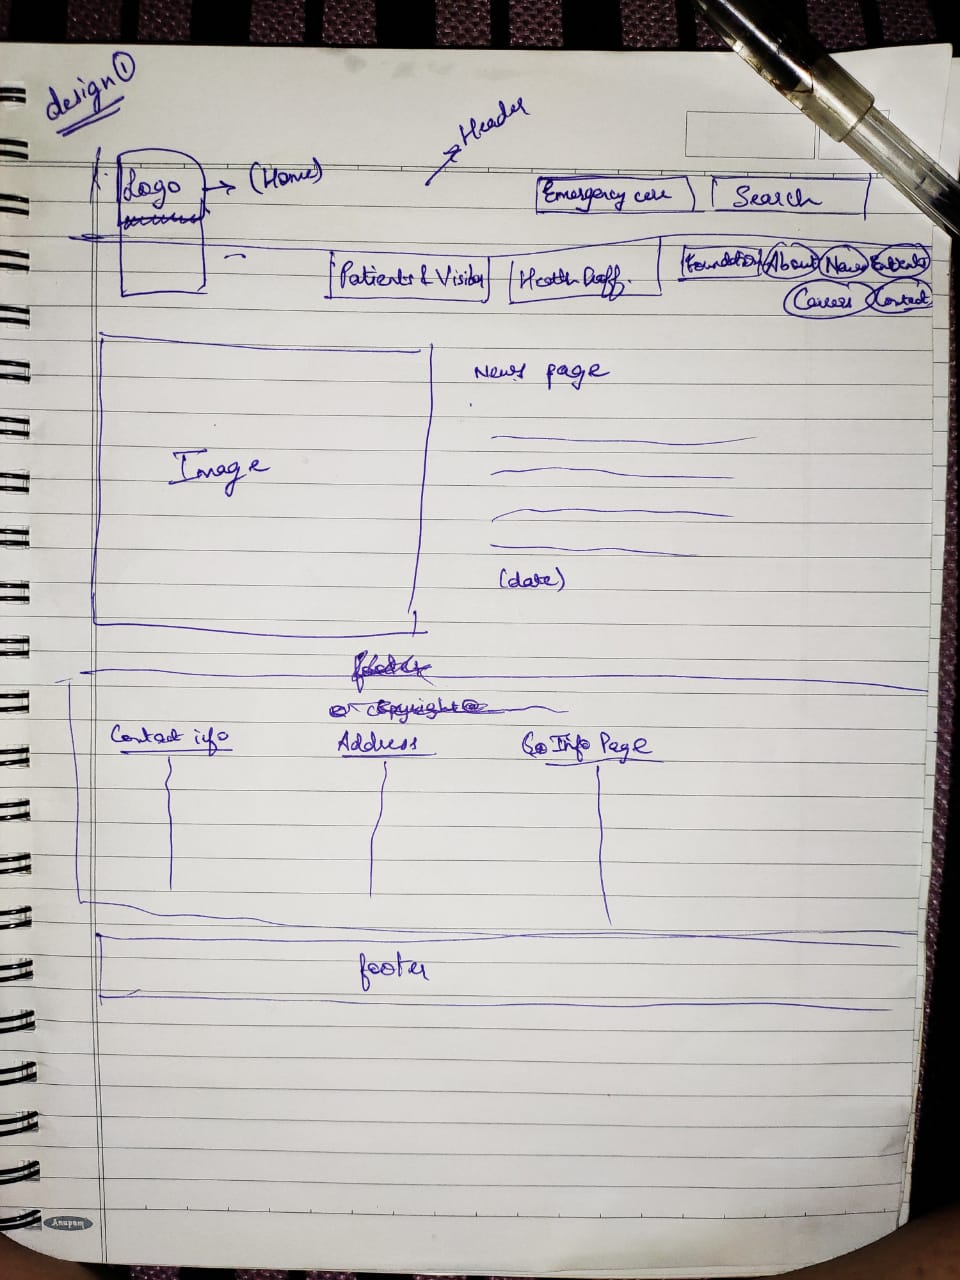 design ①
Header
Logo → (Home)
Emergency care
Search
Patients & Visitor
Health Staff.
Foundation About News Events
Careers Contact
News page
Image
(date)
Contact info
Address
Info Page
footer
Anupam